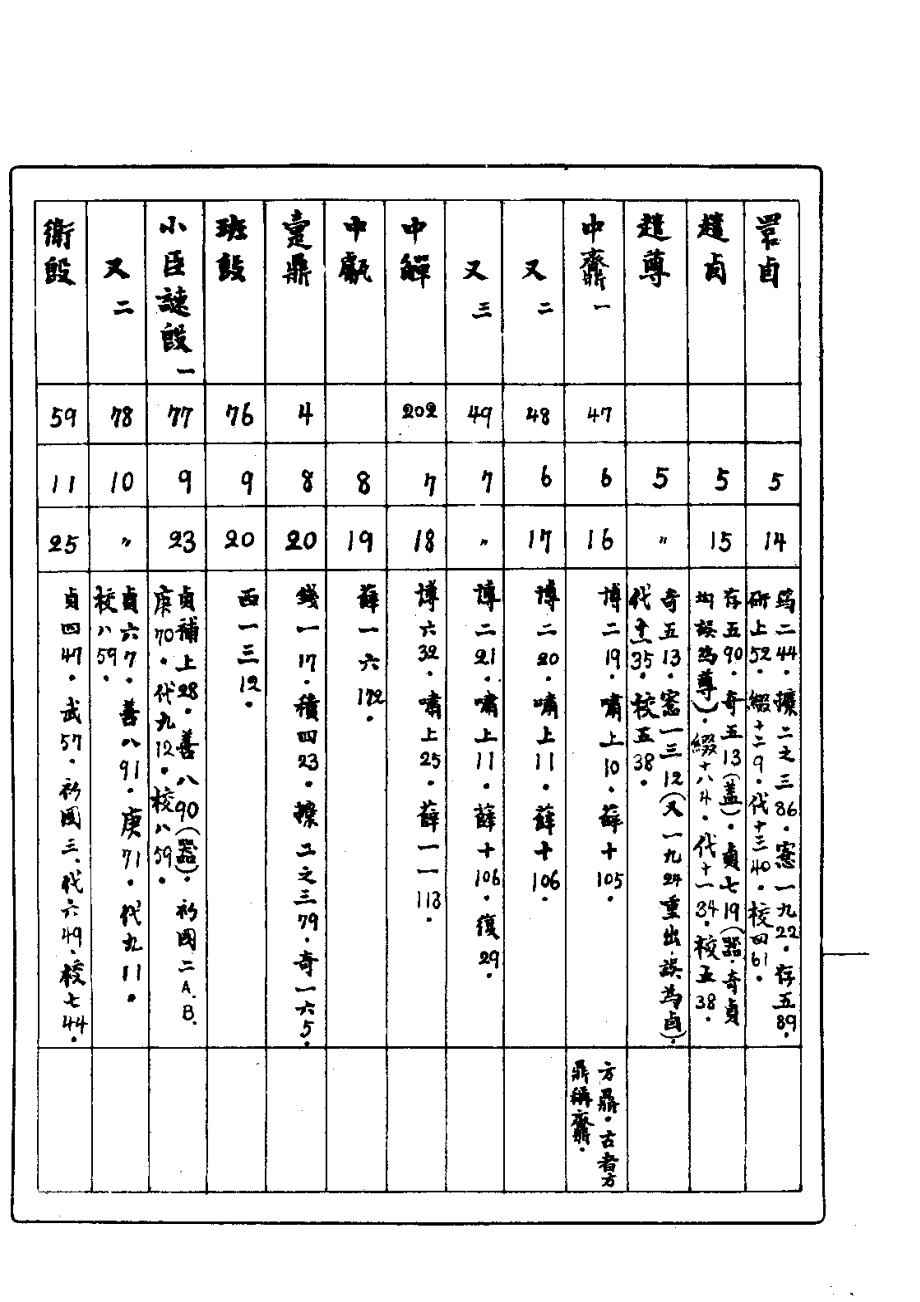 睘卣
5
14
筠二44．攗二之三86．愙一九22．存五89．
研上52．綴十二9．代十三40．校四61．
趞卣
5
15
存五90．奇五13（蓋）．貞七19（器．奇貞
均誤為尊）．綴十八4．代十一34．校五38．
趞尊
5
〃
奇五13．愙一三12（又一九24重出．誤為卣）．
代十一35．校五38．
中齋鼎一
47
6
16
博二19．嘯上10．薛十105．
方鼎．古者方
鼎稱齋鼎．
又二
48
6
17
博二20．嘯上11．薛十106．
又三
49
7
〃
博二21．嘯上11．薛十106．復29．
中觶
202
7
18
博六32．嘯上25．薛一一113．
中甗
8
19
薛一六172．
疐鼎
4
8
20
錢一17．積四23．攗二之三79．奇一六5．
班𣪘
76
9
20
西一三12．
小臣謎𣪘一
77
9
23
貞補上28．善八90（器）．衫國二A.B.
庚70．代九12．校八59．
又二
78
10
〃
貞六7．善八91．庚71．代九11．
校八59．
衛𣪘
59
11
25
貞四47．武57．衫國三．代六49．校七44．